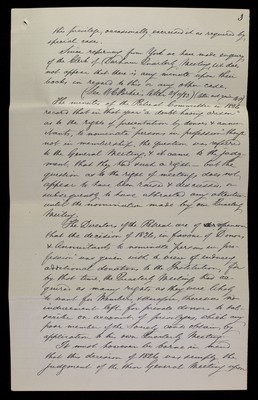 3
this privilege, occasionally, exercised it as required by
special case.
Since returning from York we have made enquiry
of the Clerk of Durham Quarterly Meeting & it does
not appear that there is any minute upon their
books in regard to this or any other case.
The minutes of the Retreat Committee in 1826
record that in that year "a doubt having arisen"
as to the right of presentation by donors & annui-
tants, to nominate "persons in profession though
not in membership, the question was referred
to the General Meeting, & it came to the judg-
ment, that they had such a right — but the
question as to the right of meetings does not,
appear to have been raised & discussed or
subsequently to have attracted any attention
until the nomination made by our Quarterly
Meeting.
The Directors of the Retreat are of opinion
that the decision of 1826, in favour of Donors
& Annuitants to nominate persons in "pro-
fession" was given with a view of inducing
additional donations to the Institution, for
by that time the Quarterly Meetings had ac-
quired as many rights as they were likely
to want for Members, & therefore there was no
inducement left, for private donors to sub-
scribe on account of privileges, which any
poor member of the Society could obtain, by
application to his own Quarterly Meeting.
It must however be borne in mind
that this decision of 1826 was simply the
judgment of the then General Meeting upon